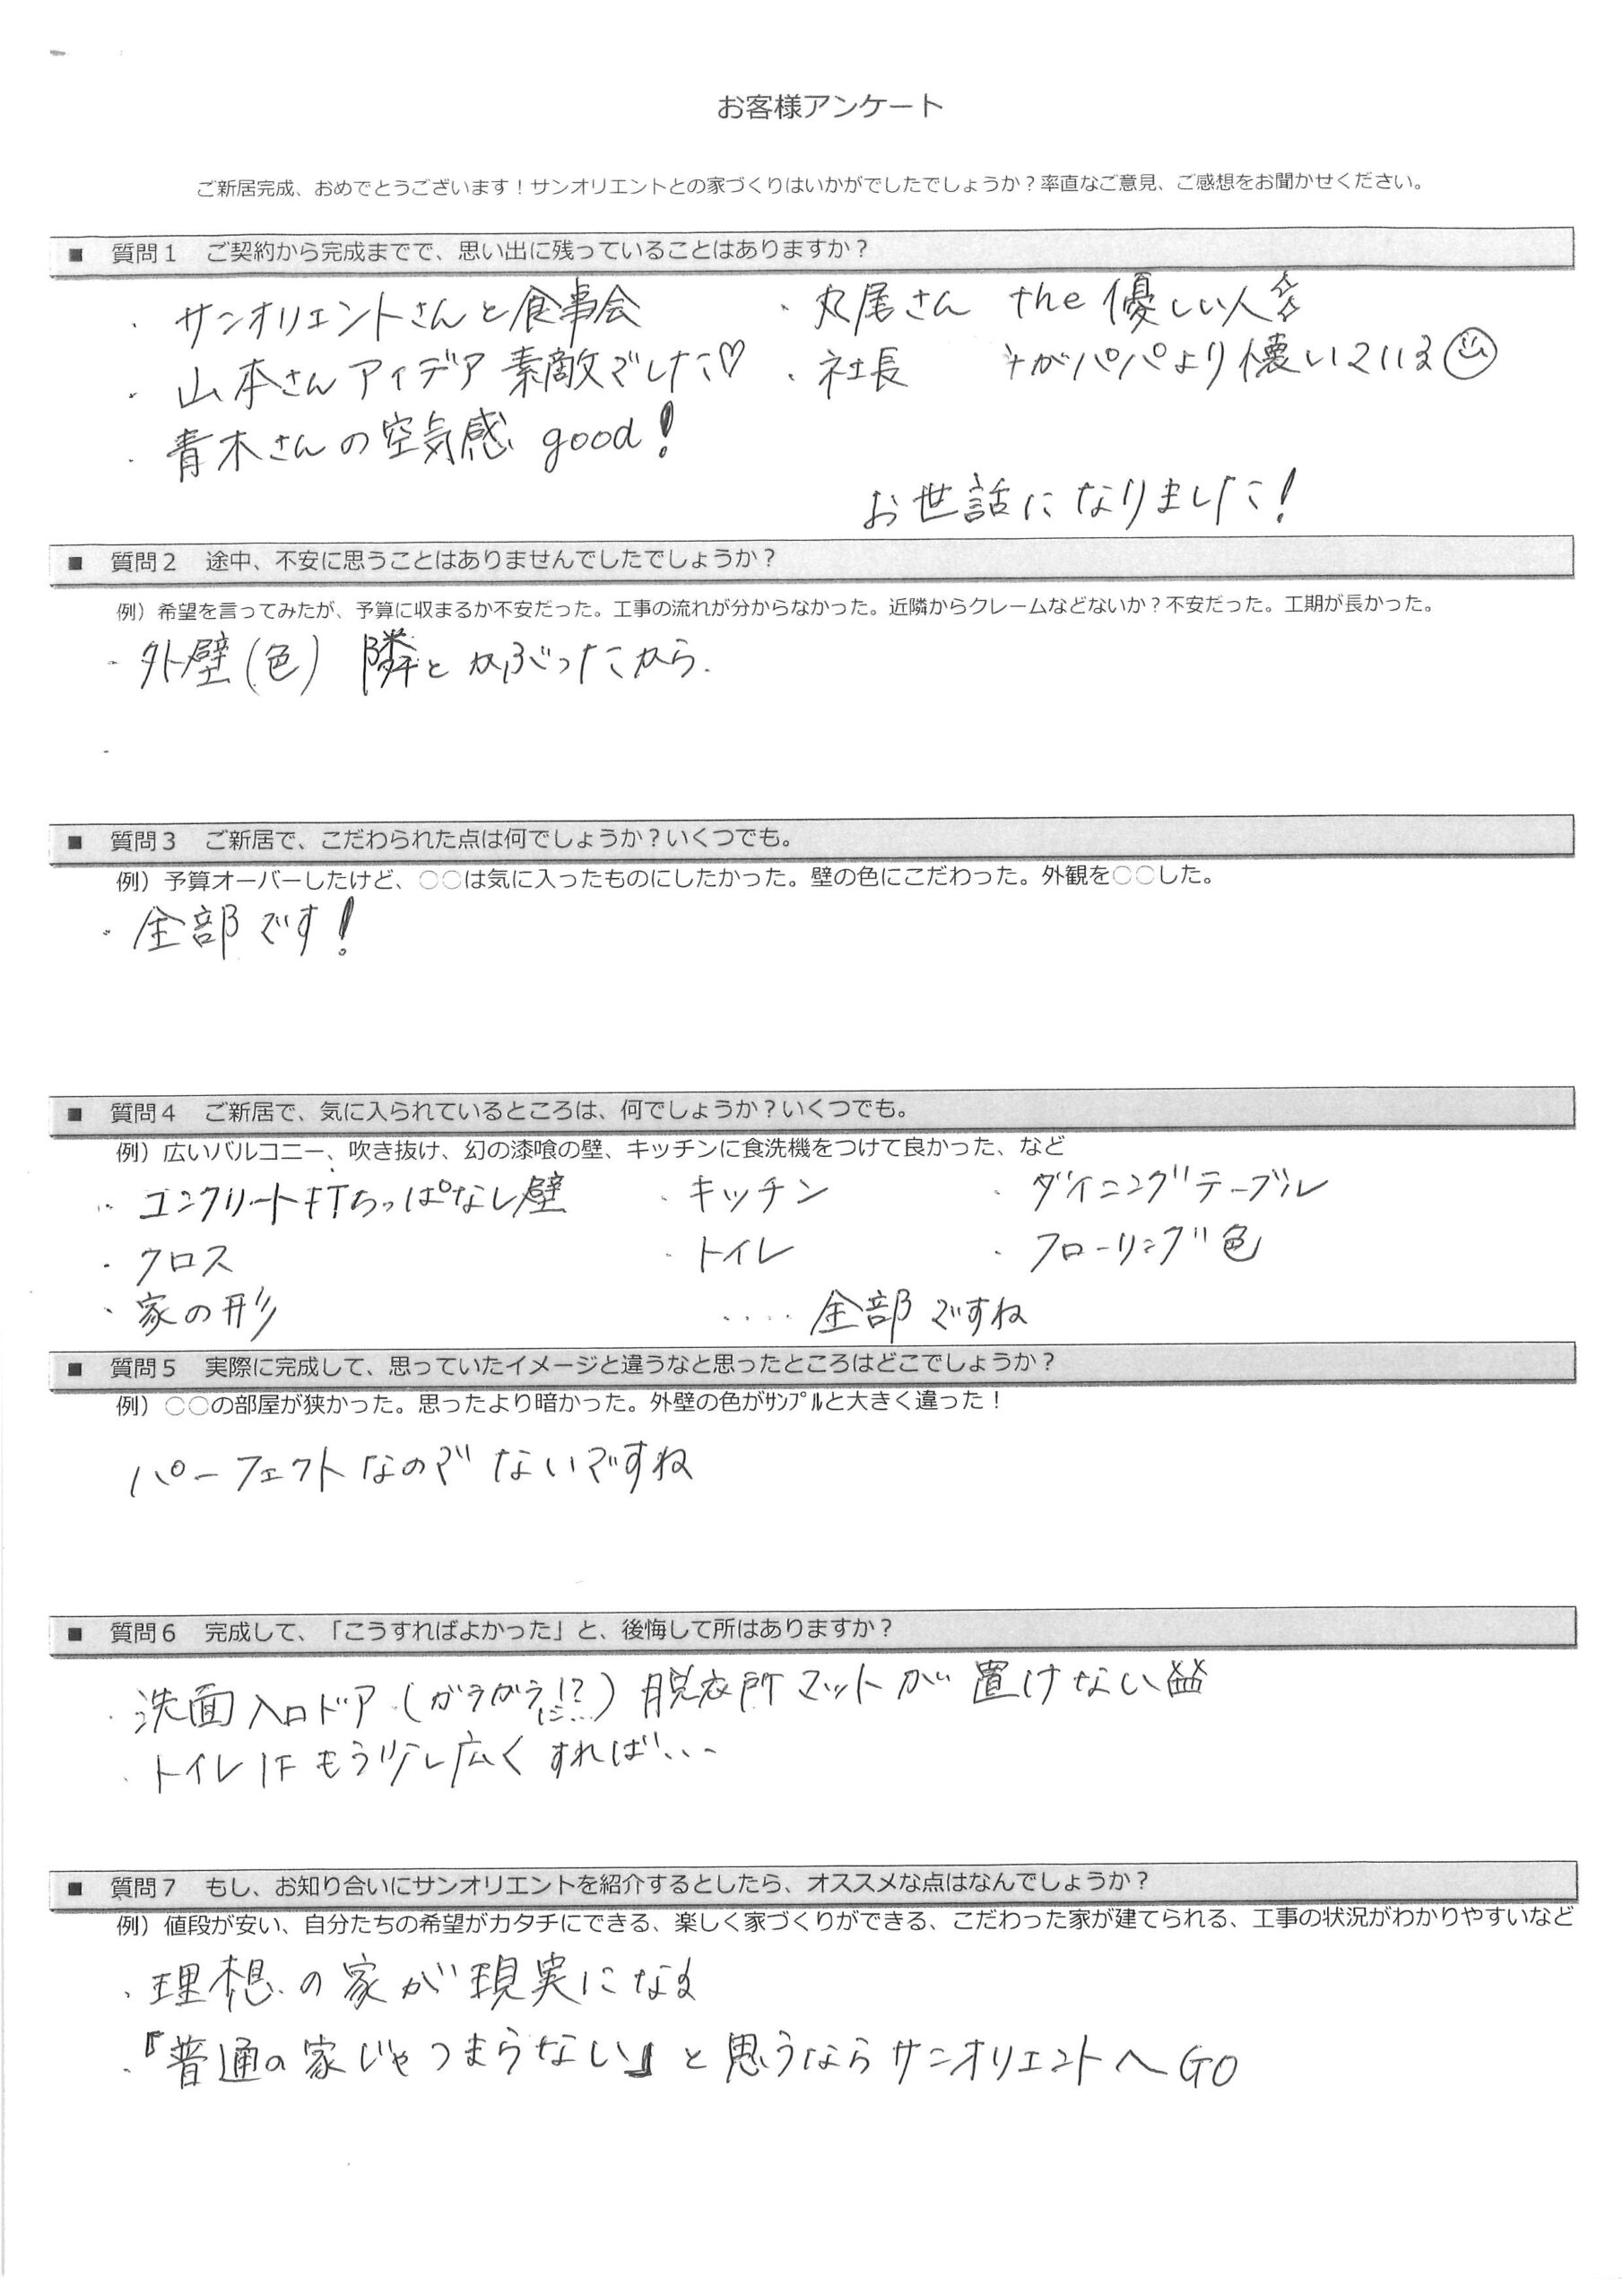 お客様アンケート
ご新居完成、おめでとうございます！サンオリエントとの家づくりはいかがでしたでしょうか？率直なご意見、ご感想をお聞かせください。
■ 質問１ ご契約から完成までで、思い出に残っていることはありますか？
・サンオリエントさんと食事会
・山本さんアイデア素敵でした♡
・青木さんの空気感 good！
・丸尾さん the 優しい人
・社長 がパパより懐いている
お世話になりました！
■ 質問２ 途中、不安に思うことはありませんでしたでしょうか？
例）希望を言ってみたが、予算に収まるか不安だった。工事の流れが分からなかった。近隣からクレームなどないか？不安だった。工期が長かった。
・外壁（色） 隣とかぶったから.
■ 質問３ ご新居で、こだわられた点は何でしょうか？いくつでも。
例）予算オーバーしたけど、○○は気に入ったものにしたかった。壁の色にこだわった。外観を○○した。
・全部です！
■ 質問４ ご新居で、気に入られているところは、何でしょうか？いくつでも。
例）広いバルコニー、吹き抜け、幻の漆喰の壁、キッチンに食洗機をつけて良かった、など
・コンクリート打ちっぱなし壁 ・キッチン ・ダイニングテーブル
・クロス ・トイレ ・フローリング色
・家の形 ‥‥全部ですね
■ 質問５ 実際に完成して、思っていたイメージと違うなと思ったところはどこでしょうか？
例）○○の部屋が狭かった。思ったより暗かった。外壁の色がｻﾝﾌﾟﾙと大きく違った！
パーフェクトなので ないですね
■ 質問６ 完成して、「こうすればよかった」と、後悔して所はありますか？
・洗面入口ドア（ガラガラに…!?）脱衣所マットが置けない
・トイレ1Fもう少し広くすれば、、、
■ 質問７ もし、お知り合いにサンオリエントを紹介するとしたら、オススメな点はなんでしょうか？
例）値段が安い、自分たちの希望がカタチにできる、楽しく家づくりができる、こだわった家が建てられる、工事の状況がわかりやすいなど
・理想の家が現実になる
・『普通の家じゃつまらない』と思うならサンオリエントへGO